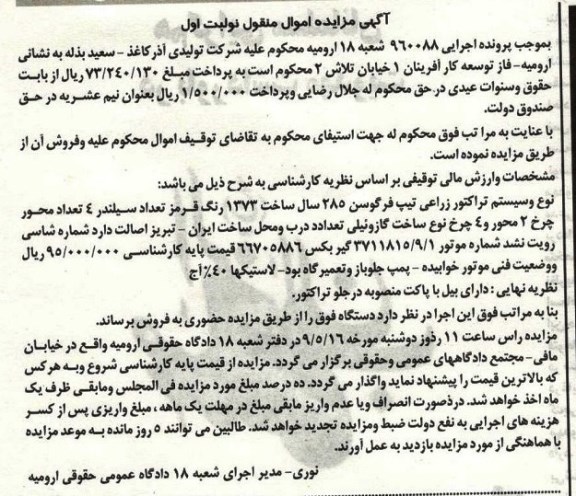 آگهی مزایده اموال منقول نوبت اول
بموجب پرونده اجرایی ۹۶۰۰۸۸ شعبه ۱۸ ارومیه محکوم علیه شرکت تولیدی آذر کاغذ - سعید بذله به نشانی
ارومیه - فاز توسعه کار آفرینان ۱ خیابان تلاش ۲ محکوم است به پرداخت مبلغ ۷۳/۲۴۰/۱۳۰ ریال از بابت
حقوق وسنوات عیدی در حق محکوم له جلال رضایی وپرداخت ۱/۵۰۰/۰۰۰ ریال بعنوان نیم عشریه در حق
صندوق دولت.
با عنایت به مراتب فوق محکوم له جهت استیفای محکوم به تقاضای توقیف اموال محکوم علیه وفروش آن از
طریق مزایده نموده است.
مشخصات وارزش مالی توقیفی بر اساس نظریه کارشناسی به شرح ذیل می باشد:
نوع وسیستم تراکتور زراعی تیپ فرگوسن ۲۸۵ سال ساخت ۱۳۷۳ رنگ قرمز تعداد سیلندر ۴ تعداد محور
چرخ ۲ محور و۴ چرخ نوع ساخت گازوئیلی تعدادد درب ومحل ساخت ایران - تبریز اصالت دارد شماره شاسی
رویت نشد شماره موتور ۳۷۱۱۸۱۵/۹/۱ گیر بکس ۶۶۷۰۵۸۸۶ قیمت پایه کارشناسی ۹۵/۰۰۰/۰۰۰ ریال
ووضعیت فنی موتور خوابیده - پمپ جلوباز وتعمیرگاه بود- لاستیکها ۴۰٪ آج
نظریه نهایی : دارای بیل با پاکت منصوبه در جلو تراکتور.
بنا به مراتب فوق این اجرا در نظر دارد دستگاه فوق را از طریق مزایده حضوری به فروش برساند.
مزایده راس ساعت ۱۱ ردوز دوشنبه مورخه ۹/۵/۱۶ در دفتر شعبه ۱۸ دادگاه حقوقی ارومیه واقع در خیابان
مافی- مجتمع دادگاههای عمومی وحقوقی برگزار می گردد. مزایده از قیمت پایه کارشناسی شروع وبه هر کس
که بالاترین قیمت را پیشنهاد نماید واگذار می گردد. ده درصد مبلغ مورد مزایده فی المجلس ومابقی ظرف یک
ماه اخذ خواهد شد. در ذصورت انصراف ویا عدم واریز مابقی مبلغ در مهلت یک ماهه ، مبلغ واریزی پس از کسر
هزینه های اجرایی به نفع دولت ضبط ومزایده تجدید خواهد شد. طالبین می توانند ۵ روز مانده به موعد مزایده
با هماهنگی از مورد مزایده بازدید به عمل آورند.
نوری- مدیر اجرای شعبه ۱۸ دادگاه عمومی حقوقی ارومیه